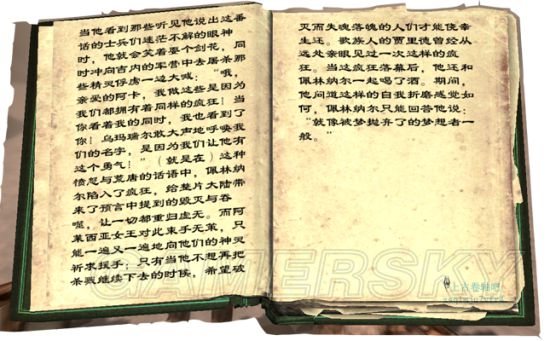 当他看到那些听见他说出这番
话的士兵们迷茫不解的眼神
时，他就会笑着耍个剑花，同
时冲向吉内的军营中去屠杀那
些精灵俘虏一边大喊：“哦，
亲爱的阿卡，我做这些是因为
我们都拥有着同样的疯狂！当
你看着我的同时，我也看到了
你！乌玛瑞尔敢大声地呼唤我
们的名字，是因为我们让他有
这个勇气！”（就是在）这种
愤怒与荒唐的话语中，佩林纳
尔陷入了疯狂，给整片大陆带
来了预言中提到的毁灭与吞
噬，让一切都重归虚无。而阿
莱西亚女王对此束手无策，只
能一遍又一遍地向他们的神灵
祈求援手；只有当他不想再把
杀戮继续下去的时候，希望破
灭而失魂落魄的人们才能侥幸
生还。歌族人的贾里德曾经从
远处亲眼见过一次这样的疯
狂。当这疯狂落幕后，他还和
佩林纳尔一起喝了酒。期间，
他问道这样的自我折磨感觉如
何，佩林纳尔只能回答他说：
“就像被梦抛弃了的梦想者一
般。”
GAMERSKY
上古卷轴吧